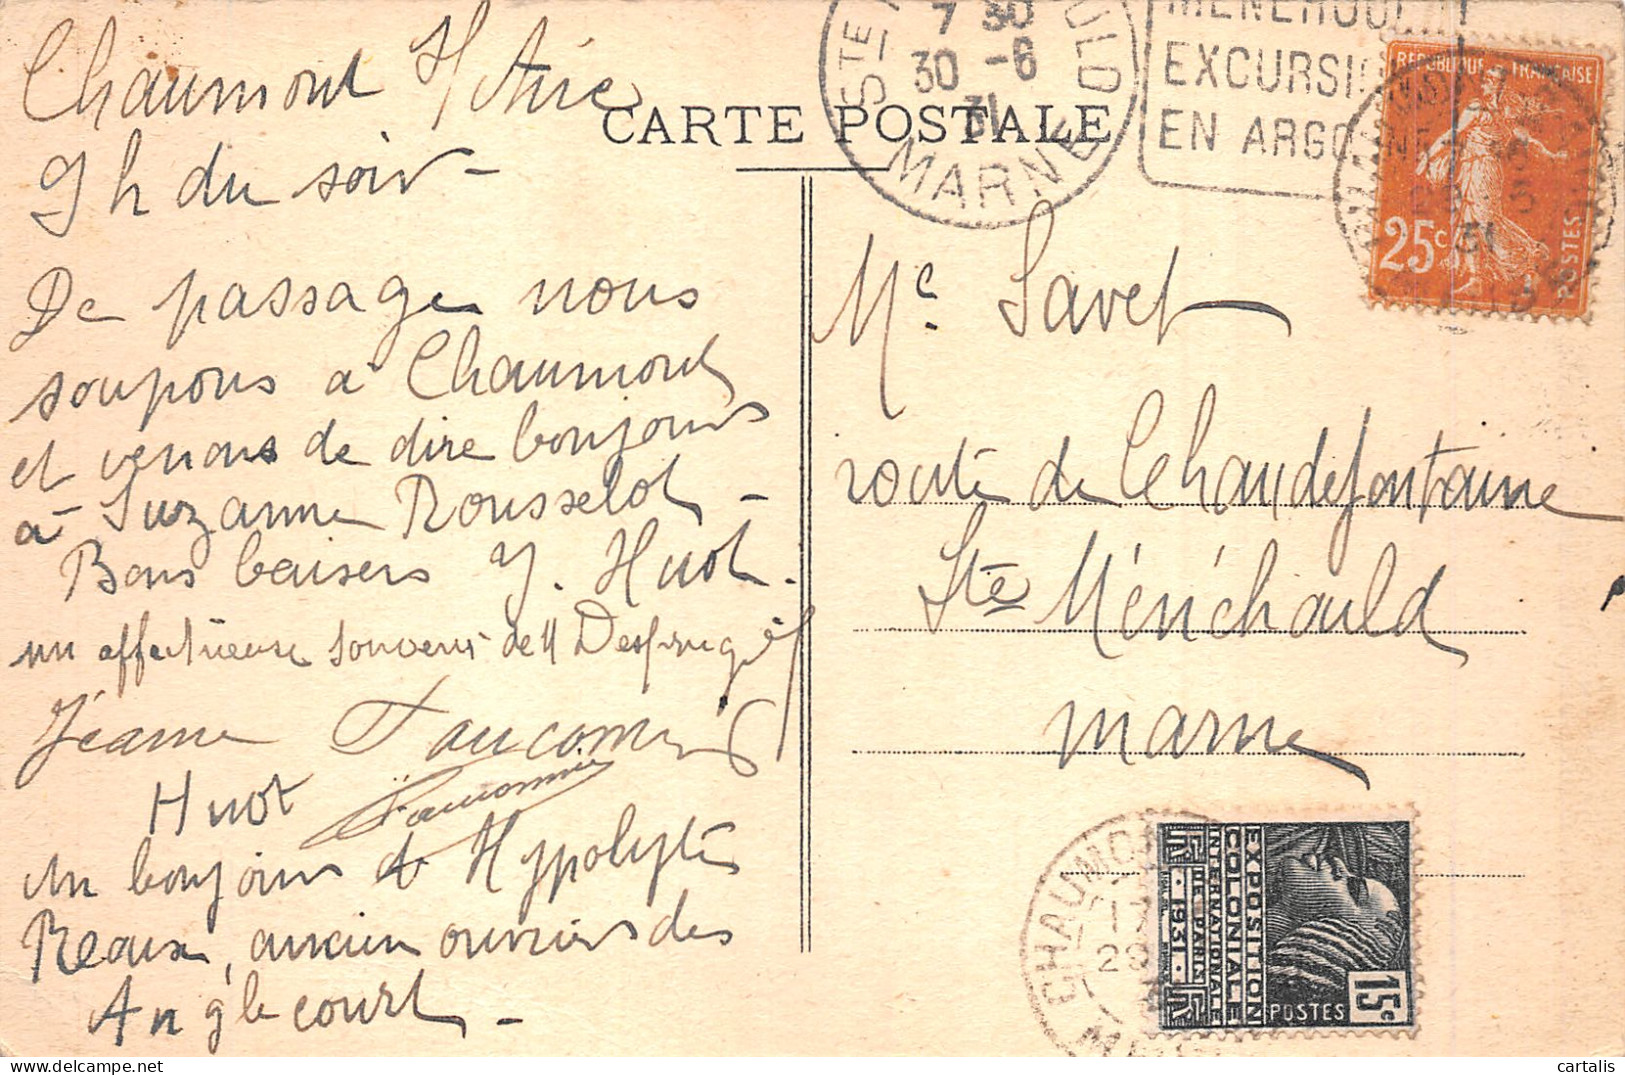 Chaumont s/ Aire
9 h du soir -
De passage nous
soupons à Chaumont
et venons de dire bonjour
à Suzanne Rousselot -
Bons baisers Y. Huot.
un affectueuse souvenir de
Jeanne
Huot
un bonjour d Hypolyte
Reaux, ancien ouvrier des
Anglecourt -
CARTE POSTALE
STE M ULD
7 30
30 -6
31
MARNE
MENEHOULD
EXCURSI
EN ARGONNE
REPUBLIQUE FRANCAISE
25c
POSTES
31
Me. Savet
route de Chaudefontaine
Ste Ménéhould
Marne
CHAUMO
17
29
EXPOSITION
COLONIALE
INTERNATIONALE
DE PARIS
1931
POSTES
15c
cartalis